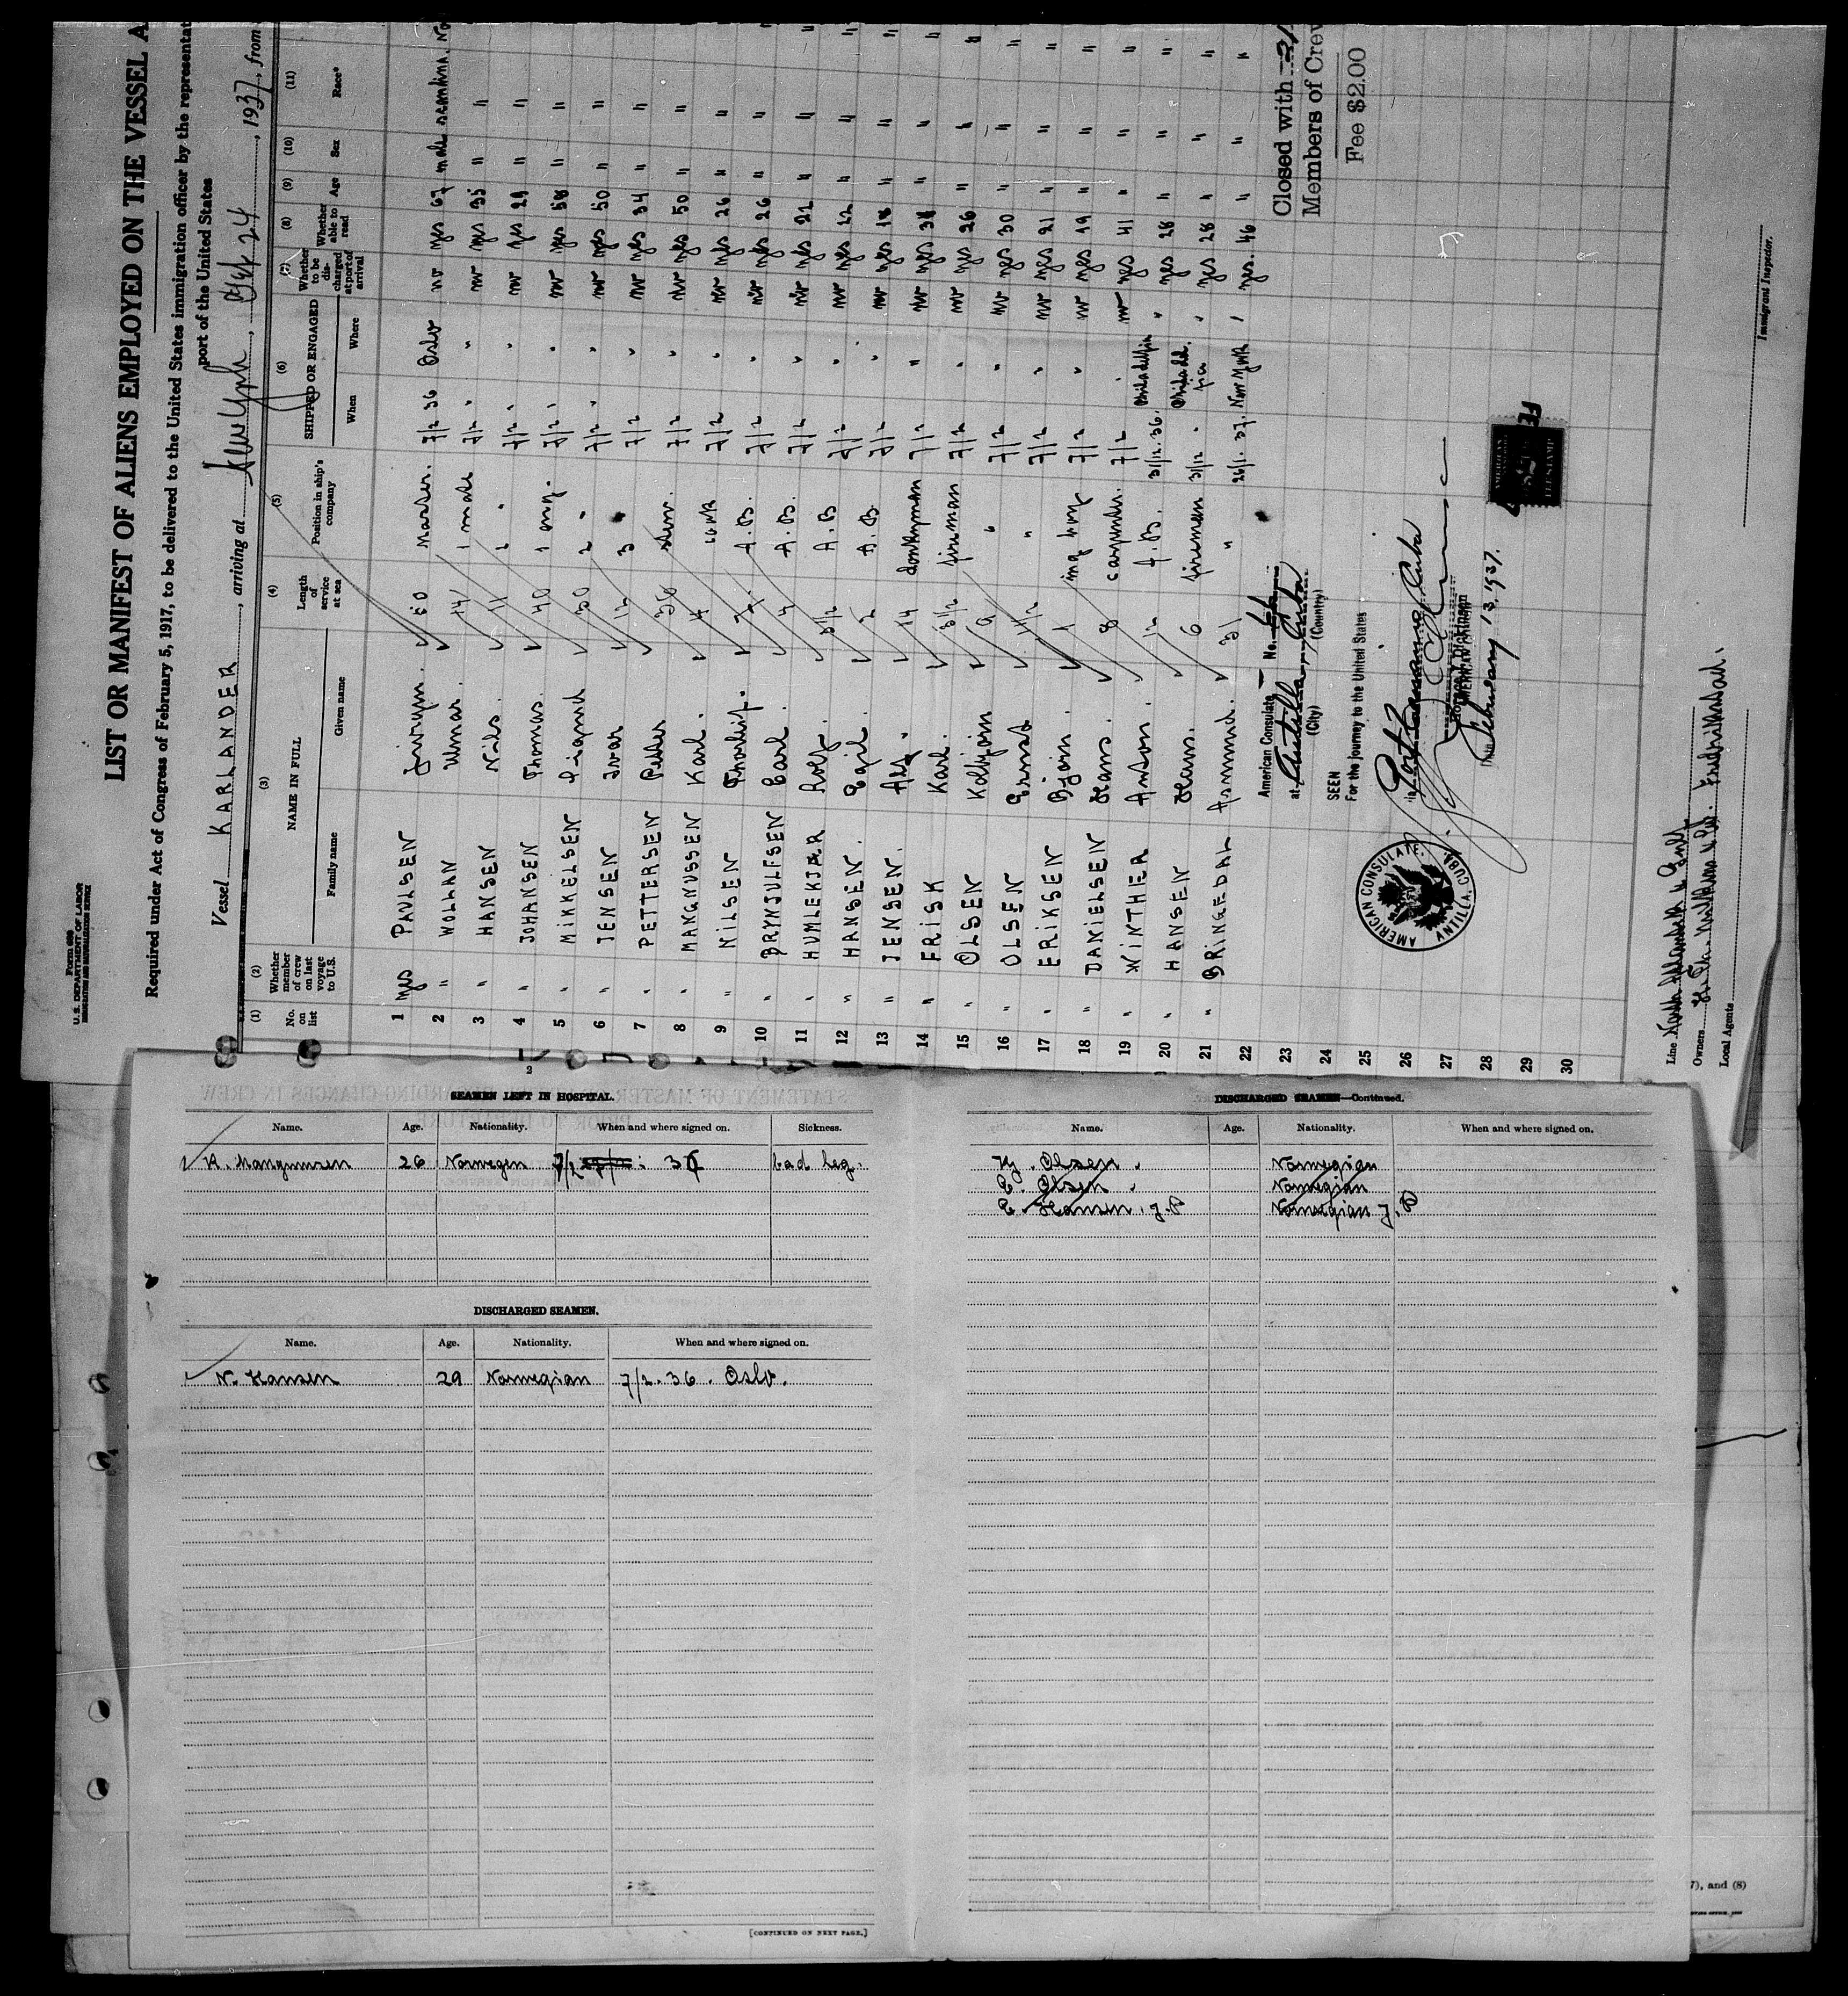 Form 689
U. S. DEPARTMENT OF LABOR
IMMIGRATION AND NATURALIZATION SERVICE
LIST OR MANIFEST OF ALIENS EMPLOYED ON THE VESSEL A
Required under Act of Congress of February 5, 1917, to be delivered to the United States immigration officer by the representat
port of the United States
Vessel KARLANDER, arriving at New York, Feb. 24, 1937, from
(1) (2) (3) (4) (5) (6) (7) (8) (9) (10) (11)
No. on list
Whether member of crew on last voyage to U.S.
NAME IN FULL
Family name Given name
Length of service at sea
Position in ship's company
SHIPPED OR ENGAGED
When Where
Whether to be discharged at port of arrival
Whether able to read
Age
Sex
Race*
1 yes PAULSEN Jörgen. 50 master. 7/2 36 Oslo no yes 67 male scandina. No
2 " WOLLAN Hilmar. 14 1 mate 7/2 " " no yes 35 " "
3 " HANSEN Nils. 11 2 " 7/2 " " no yes 29 " "
4 " JOHANSEN Thomas. 40 1 eng. 7/2 " " no yes 58 " "
5 " MIKKELSEN Sigurd 30 2 " 7/2 " " no yes 50 " "
6 " JENSEN Ivar 12 3 " 7/2 " no yes 34 " "
7 " PETTERSEN Petter 36 stew. 7/2 " no yes 50 " "
8 " MANGNUSSEN Karl. 4 cook 7/2 " no yes 26 " "
9 " NILSEN Thorleif. 7 A.B. 7/2 " no yes 26 " "
10 " BRYNJULFSEN Carl. 4 A.B. 7/2 " no yes 22 " "
11 " HUMLEKJÆR Rolf. 3 1/2 A.B 7/2 " no yes 22 " "
12 " HANSEN. Egil. 2 A.B. 7/2 " no yes 18 " "
13 " JENSEN. Alf. 14 donkeyman 7/2 " no yes 38 " "
14 " FRISK Karl. 3 1/2 fireman 7/2 " no yes 26 " "
15 " OLSEN Kolbjörn 9 " 7/2 " no yes 30 " "
16 " OLSEN Ernst 1 1/2 " 7/2 " no yes 21 " "
17 " ERIKSEN Björn. 1 mg boy 7/2 " no yes 19 " "
18 " DANIELSEN Hans. 8 carpenter. 7/2 no yes 41 " "
19 " WINTHER Anton. 12 A.B. 31/12. 36. Philadelphia " yes 28 " "
20 " HANSEN Hans. 6 fireman 31/12 " Philadelphia " yes 28 " "
21 " BRINGEDAL Asmund. 31 " 26/1. 37. New York " yes. 46 " "
22
23
24
25
26
27
28
29
30
Closed with 21
Members of Crew
Fee $2.00
American Consulate No.
at Antilla, Cuba
(City) (Country)
SEEN
For the journey to the United States
AMERICAN CONSULATE, ANTILLA, CUBA
Horace J. Dickinson
AMERICAN CONSUL
February 13, 1937.
Line
Owners
Local Agents
Immigrant Inspector.
SEAMEN LEFT IN HOSPITAL.
Name. Age. Nationality. When and where signed on. Sickness.
K. Mangnussen 26 Norwegen 7/2 36 bad leg.
DISCHARGED SEAMEN.
Name. Age. Nationality. When and where signed on.
N. Hansen 29 Norwegian 7/2. 36. Oslo.
[CONTINUED ON NEXT PAGE.]
DISCHARGED SEAMEN—Continued.
Name. Age. Nationality. When and where signed on.
Kj. Olsen. Norwegian
E. Olsen. Norwegian
E. Hansen. J.P Norwegian J.P
7), and (8)